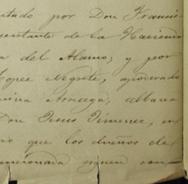 ntado por Don Francis
sentante de la Hacienda
a del Alamo; y por
Lopez Negrete, apoderado
Arreaga, albacea
Don Jesus Jimenez, en
que los dueños de
mencionada siguen con